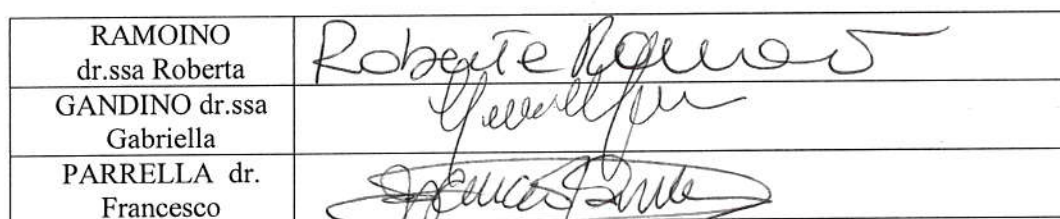 RAMOINO
dr.ssa Roberta
GANDINO dr.ssa
Gabriella
PARRELLA dr.
Francesco